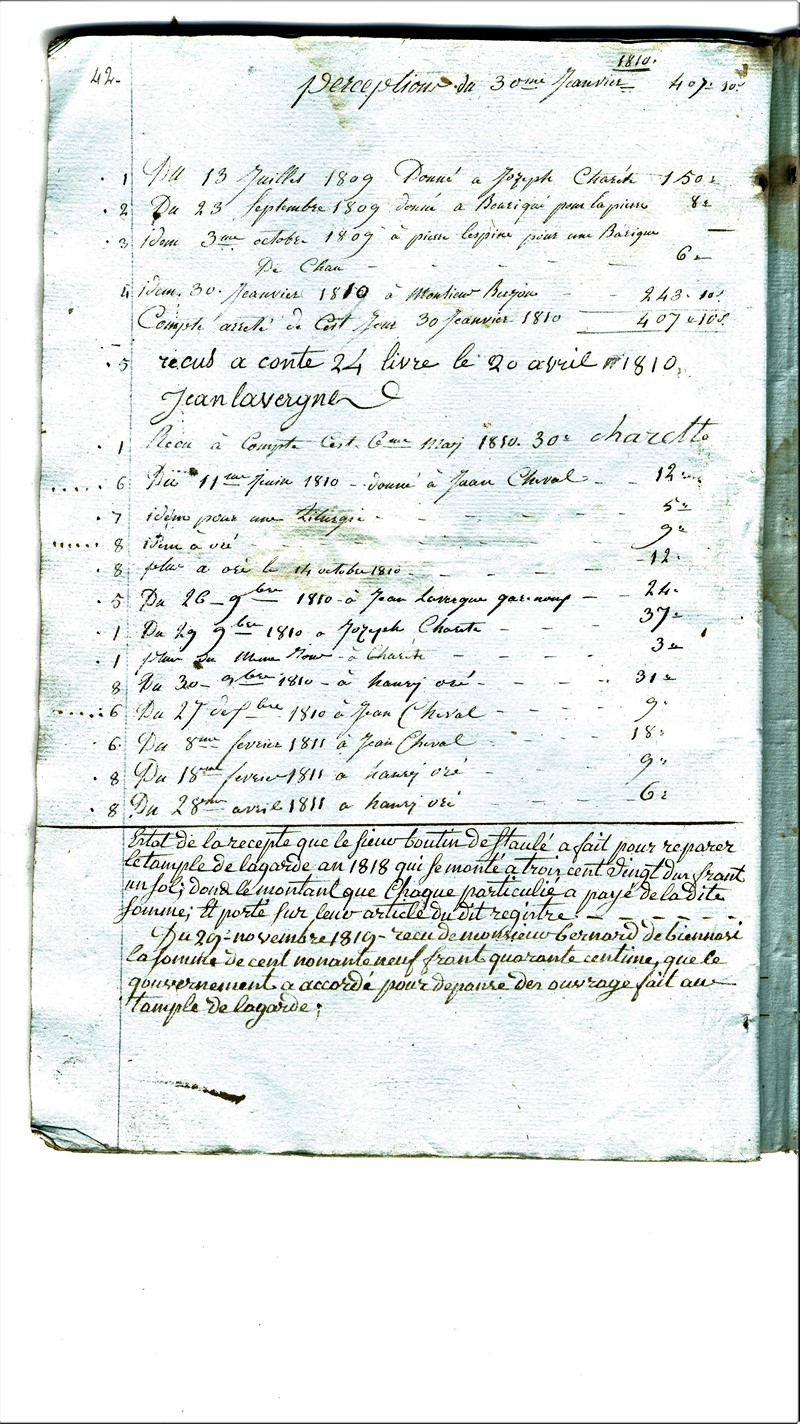 1810.
42. perceptions du 30me Jeanvier 407" 10s
1 Du 13 Juilles 1809 Donné a Jozeph Charité 150"
2 Du 23 Septembre 1809 donné a pour la pierre 8"
3 idem 3me octobre 1809 à pierre lespine pour une Barique
De Chau - - - - 6"
4 idem 30 Jeanvier 1810 à Monsieur - - 243" 10s
Compte arreté de Cest Jour 30 Jeanvier 1810 407" 10s
5 recus a conte 24 livre le 20 avril 1810
Jean lavergne
1 Recu à Compte Cest 6me May 1810. 30" charette
6 Du 11me Juin 1810 - donné à Jean Cheval - - 12"
7 idem pour une - - - - 5"
8 idem à oré - - - - 9"
8 plus a oré le 14 octobre 1810 - - - - 12"
5 Du 26 - 9bre 1810 - à Jean Lavergne - - 24"
1 Du 29 9bre 1810 a Jozeph Charité - - - 37"
1 plus du meme Jour - à Charité - - - - 3"
8 Du 30 - 9bre 1810 - à hanry oré - - - - 31"
6 Du 27 1810 à Jean Cheval - - - 9"
6 Du 8me fevrier 1811 à Jean Cheval - - - 18"
8 Du 18me fevrier 1811 a hanry oré - - - 9"
8 Du 28me avril 1811 a hanry oré - - - 6"
Estat de la recepte que le sieur boutin de a fait pour reparer
le tample de lagarde an 1818 qui se monté a trois cent vingt frant
un sol; dons le montant que Chaque particulié a payé de la dite
somme; Et porté sur leur article du dit registre. - - - -
Du 29 - novembre 1819 - recu de monsieur bernard de biennassi
la somme de cent nonante neuf frant quarante centime, que le
gouvernement a accordé pour depanse des ouvrage fait au
tample de lagarde;